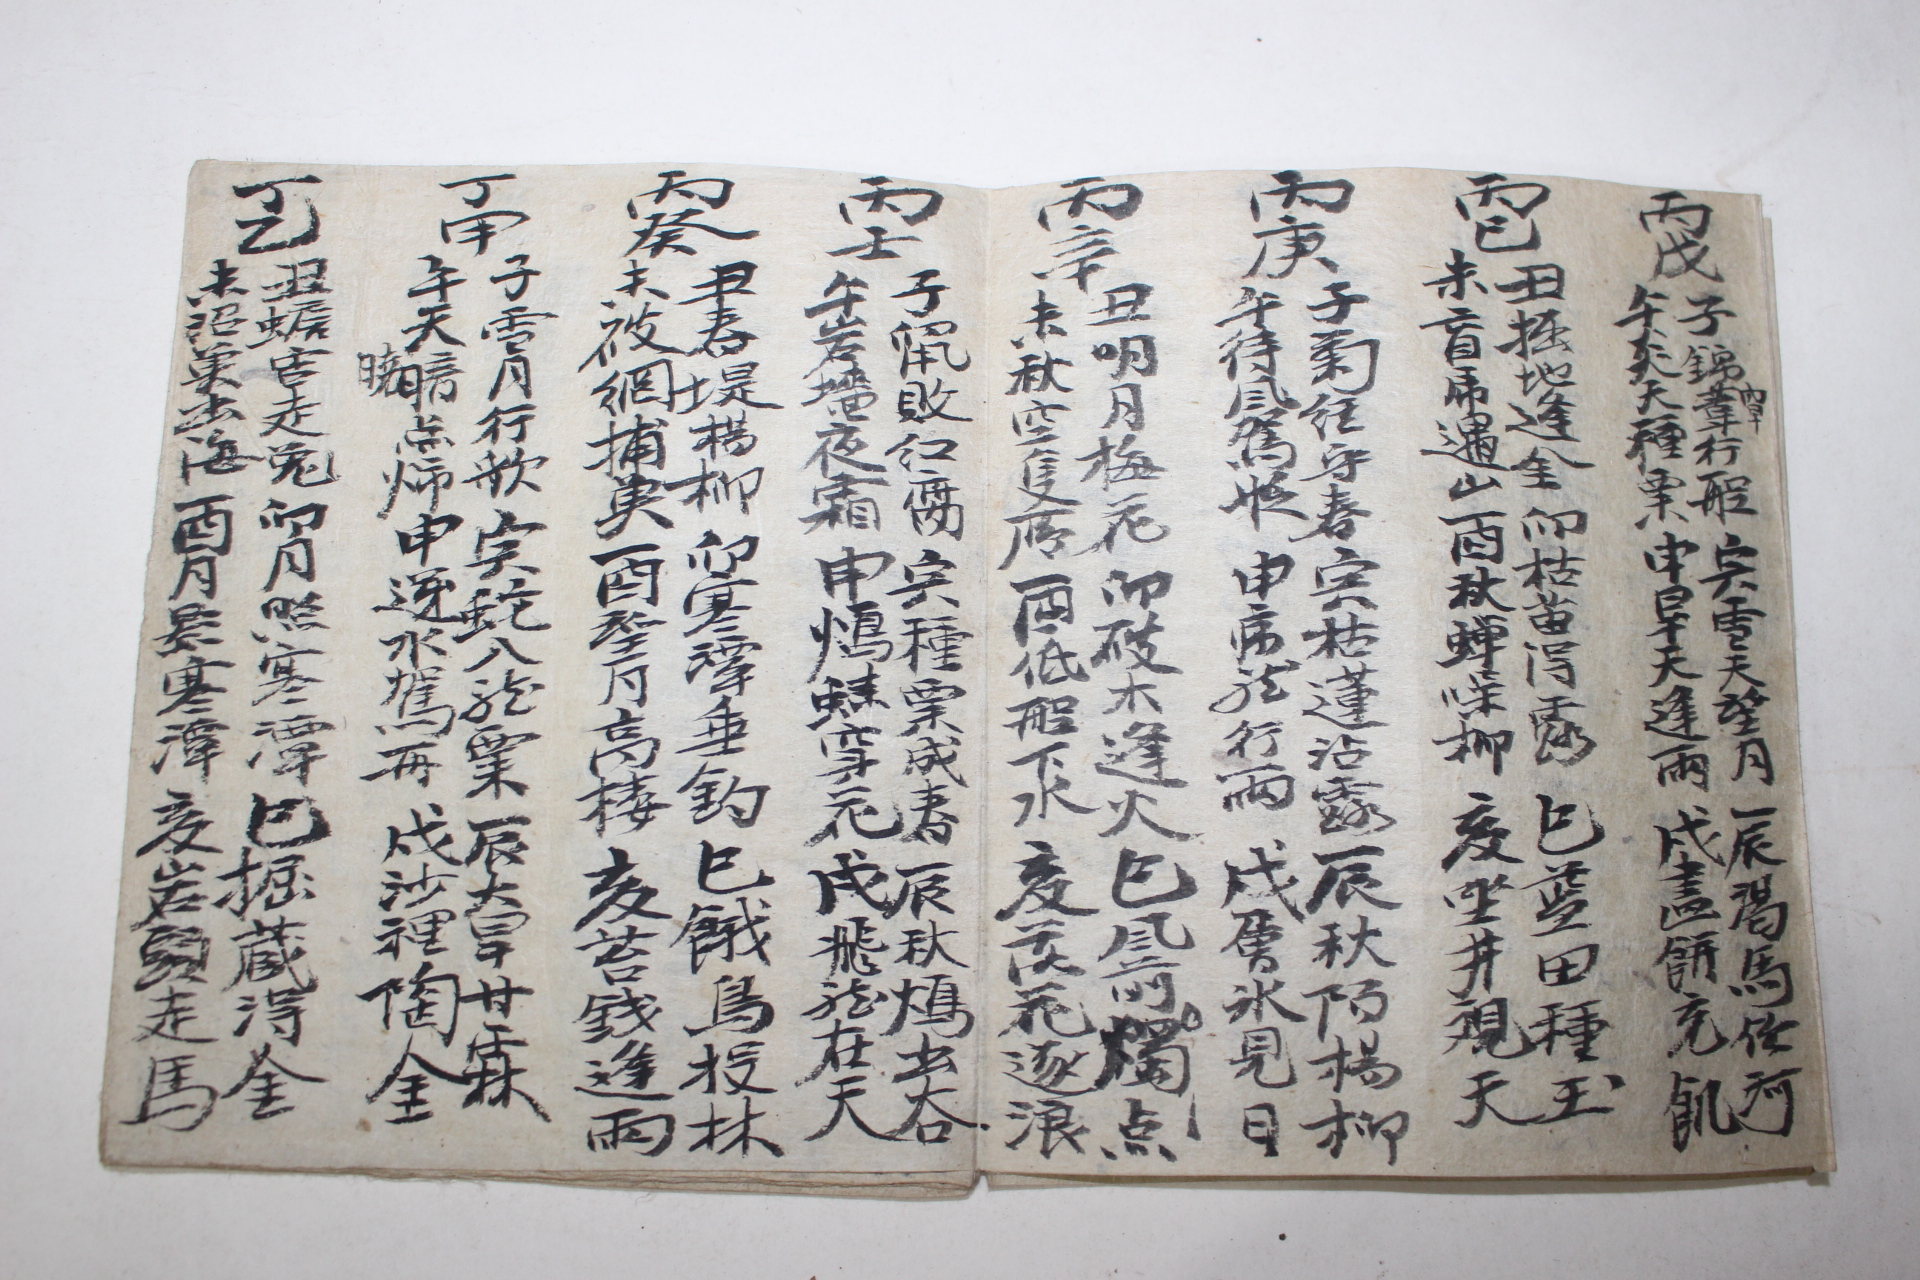 丙戊
子錦葦行船 寅雪天望月 辰渴馬伏河
午炎天種粟 申旱天逢雨 戌畵餠充飢
丙己
丑掘地逢金 卯枯苗得露 巳藍田種玉
未盲虎遇山 酉秋蟬噪柳 亥坐井觀天
丙庚
子菊往守春 寅枯蓮沾露 辰秋陌楊柳
午待風駕帆 申常龍行雨 戌層氷見日
丙辛
丑明月梅花 卯破木逢火 巳風前燭点
未秋空隻雁 酉低船下水 亥落花逐浪
丙壬
子 敗 寅種粟成春 辰秋鴆出谷
午岩墻夜霜 申 穿花 戌飛龍在天
丙癸
丑春堤楊柳 卯寒潭垂釣 巳餓鳥投林
未彼網捕魚 酉望月高樓 亥苔錢逢雨
丁甲
子雪月行歌 寅蛇入龍粟 辰大旱甘霖
午天暗点 申逆水駕舟 戌沙裡陶金
曉
丁乙
丑蟾吉走兎 卯月照寒潭 巳掘藏得金
未 出海 酉月影寒潭 亥岩頭走馬